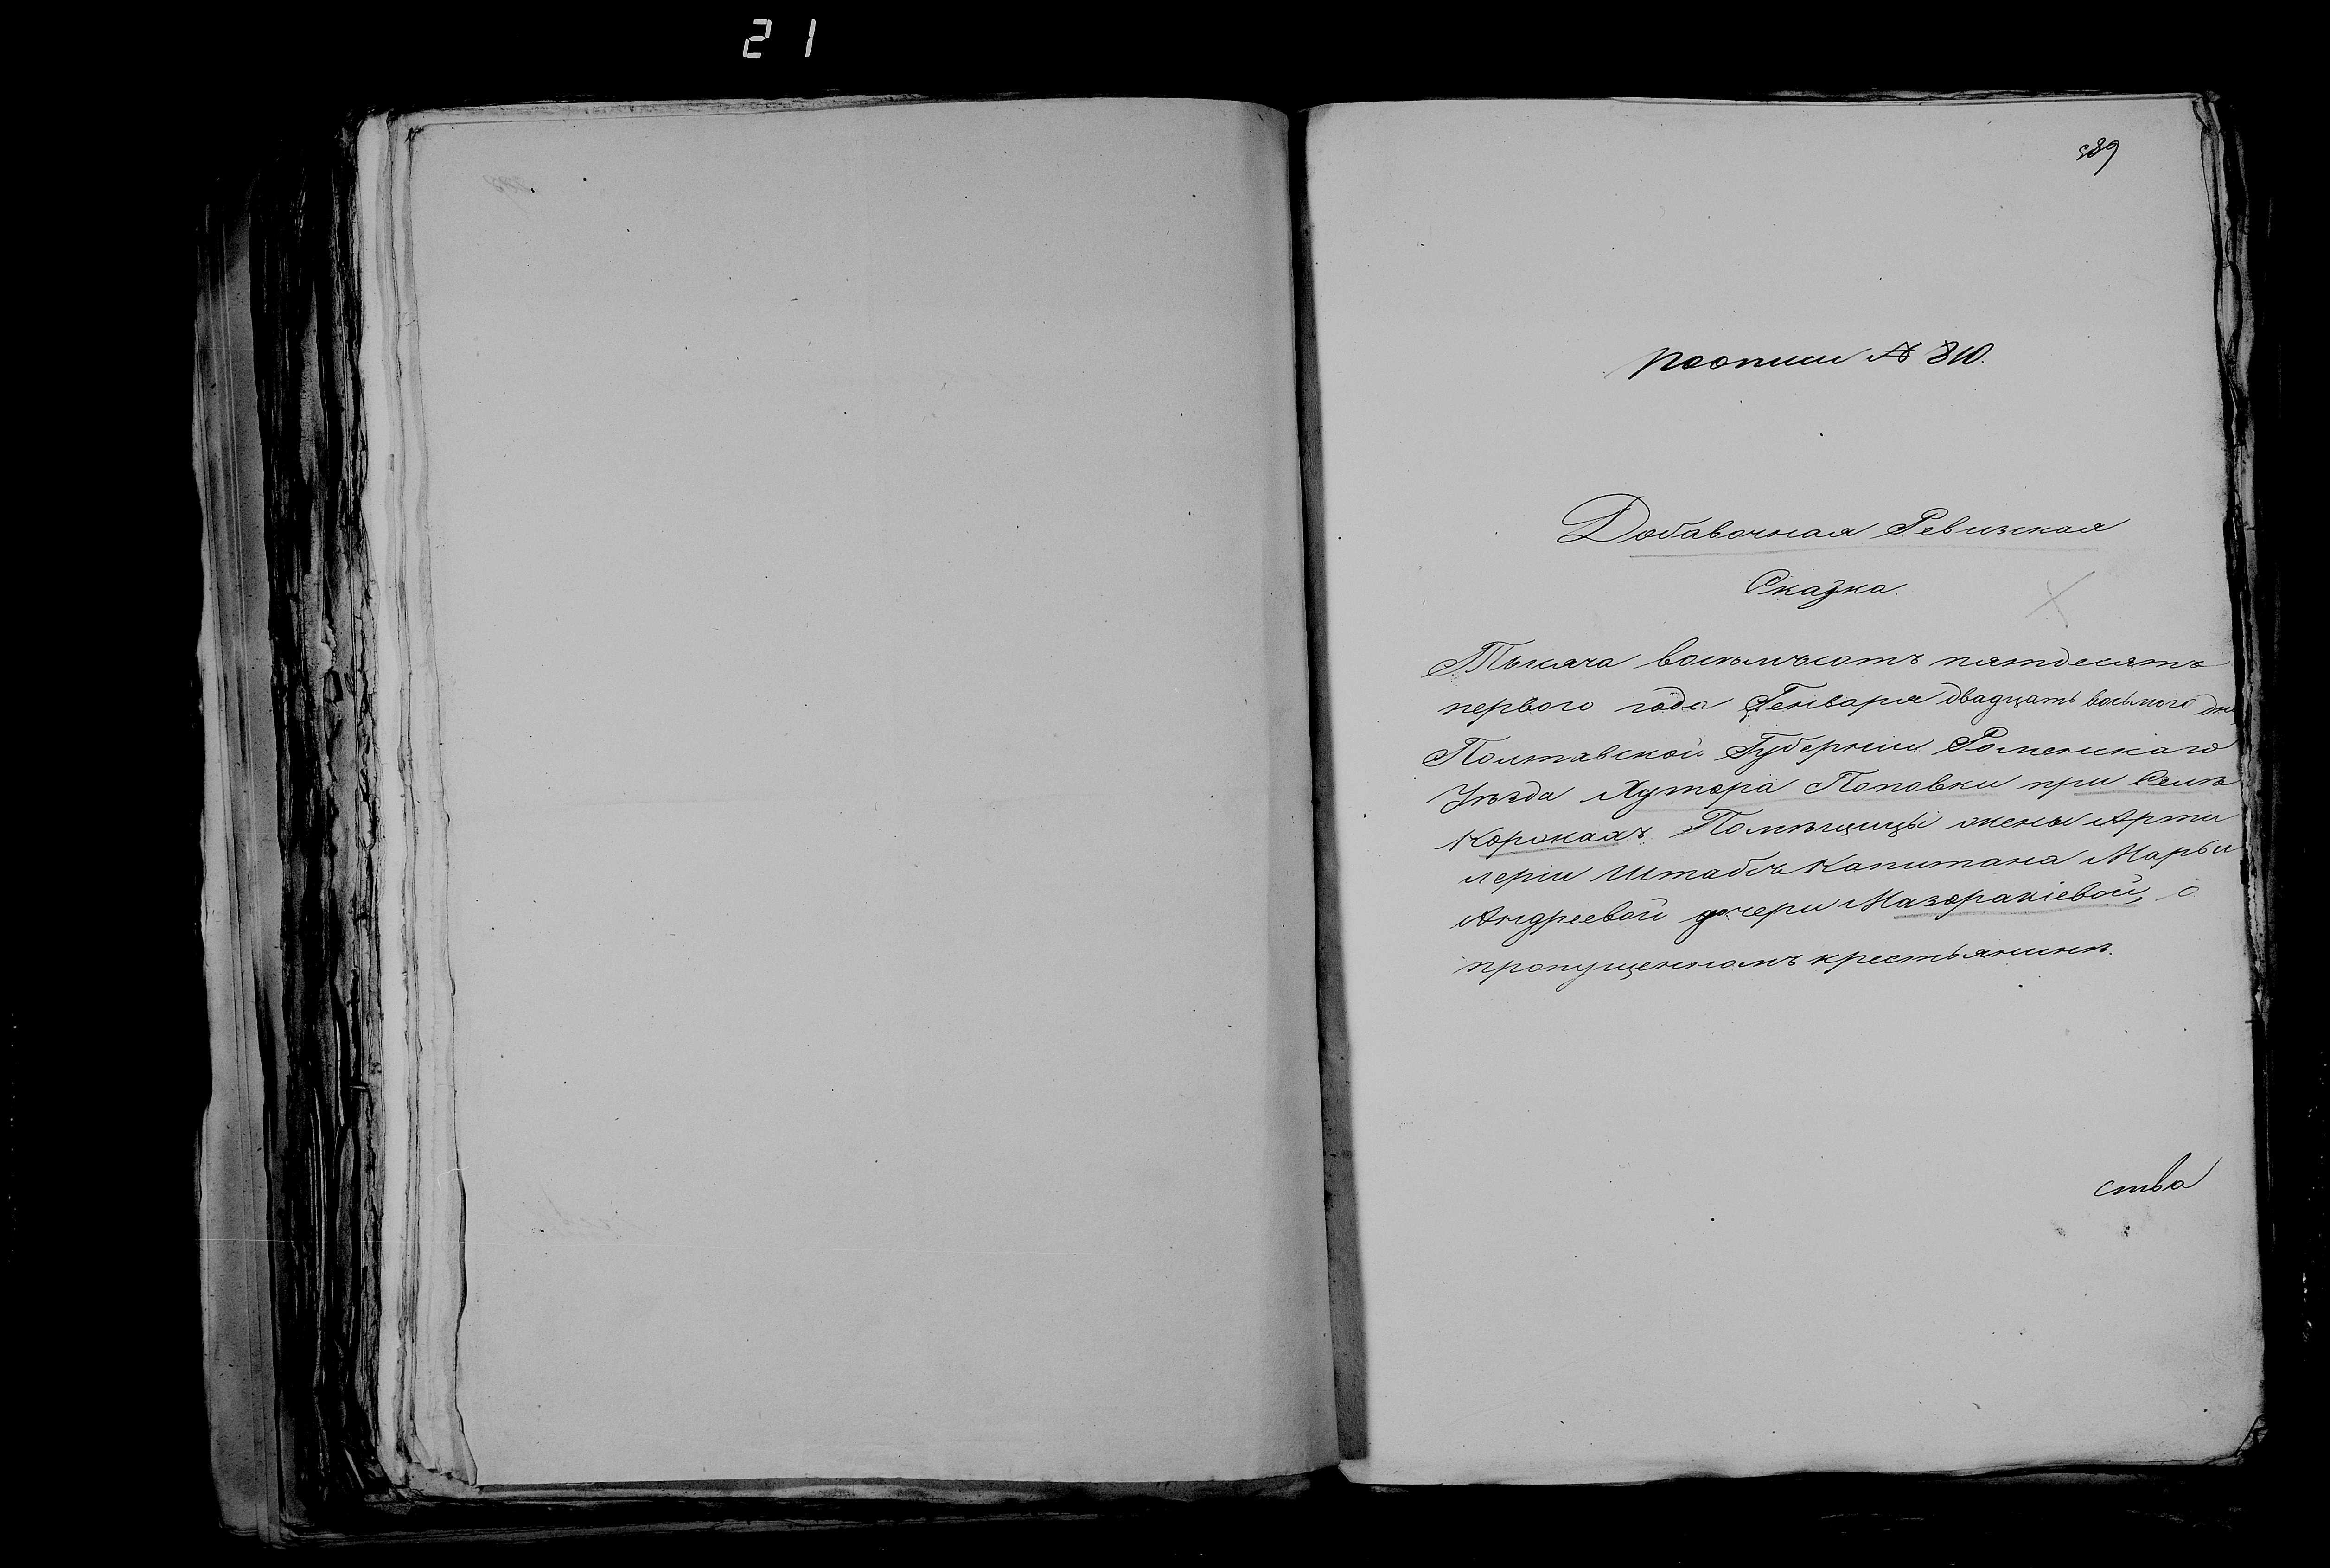 21
389
росписи № 310.
Добавочная Ревизская
Сказка.
Тысяча восьмьсотъ пятдесятъ
первого года Генваря двадцать восьмого дня
Полтавской Губерніи Роменскаго
Уѣзда Хутора Поповки при Селѣ
Коржахъ Помѣщицы жены Арти
леріи Штабсъ Капитана Марьи
Андреевой дочери Мазаракіевой, о
пропущенномъ крестьянинѣ.
ства